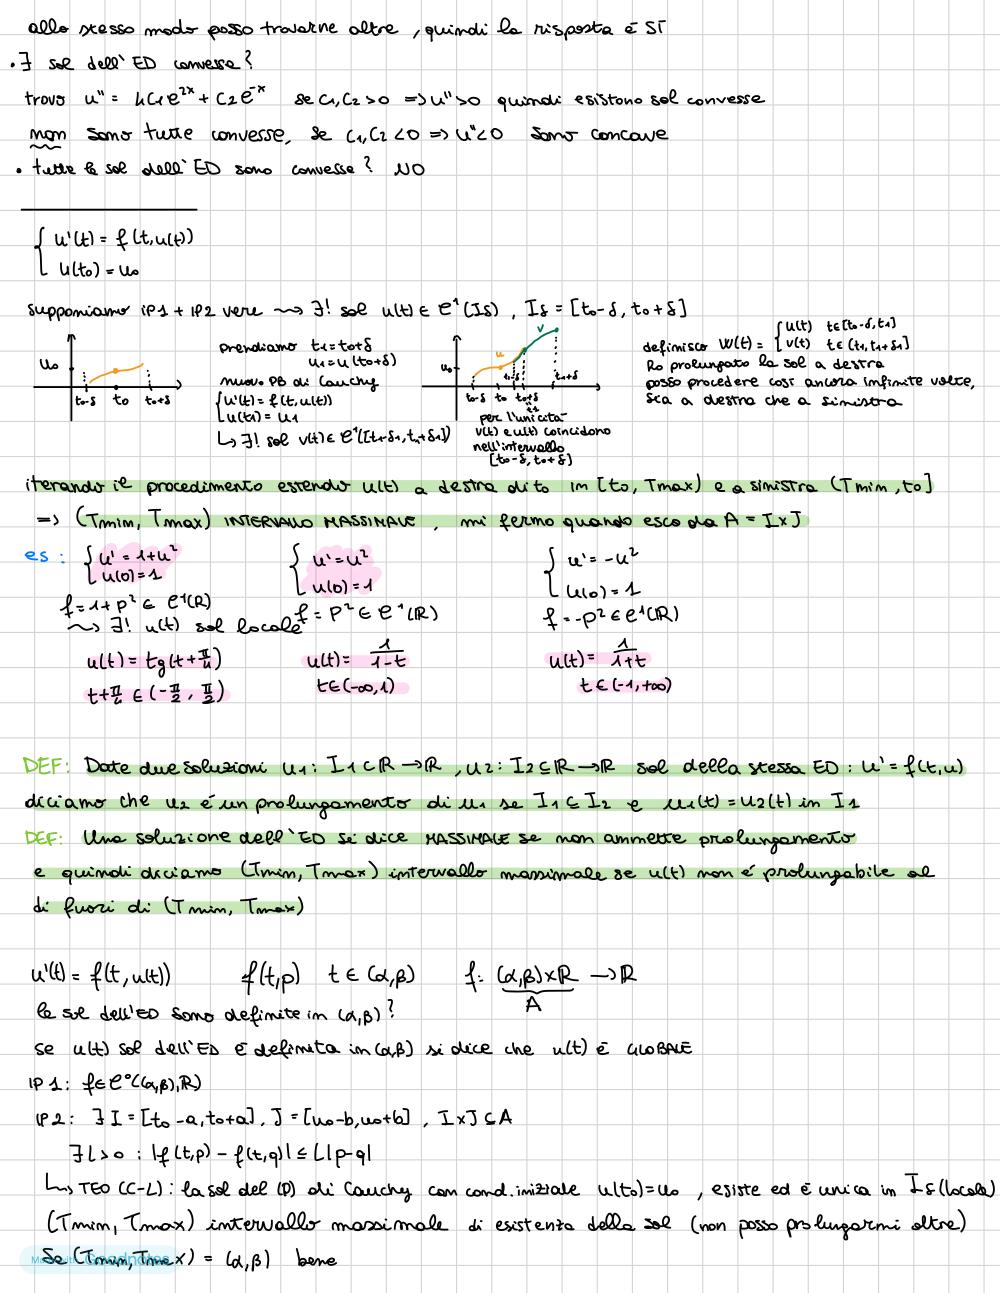 allo stesso modo posso trovarne altre, quindi la risposta è SÌ
• ∃ sol dell'ED convessa?
trovo u'' = 4C1e^2x + C2e^-x se C1,C2>0 => u''>0 quindi esistono sol convesse
non sono tutte convesse, se C1,C2<0 => u''<0 sono concave
• tutte le sol dell'ED sono convesse? NO
{ u'(t) = f(t,u(t))
u(t0) = u0
supponiamo IP1 + IP2 vere ⇝ ∃! sol u(t) ∈ C^1(Iδ), Iδ = [t0-δ, t0+δ]
u0
t0-δ t0 t0+δ
prendiamo t1=t0+δ
u1=u(t0+δ)
nuovo PB di Cauchy
{ u'(t) = f(t,u(t))
u(t1) = u1
↳ ∃! sol v(t) ∈ C^1([t1-δ1, t1+δ1])
u0
u
v
t0-δ t0 t0+δ
t1
t1+δ1
per l'unicità
v(t) e u(t) coincidono
nell'intervallo
[t0-δ, t0+δ]
definisco W(t) = { u(t) t∈[t0-δ,t1]
v(t) t∈(t1,t1+δ1]
Ho prolungato la sol a destra
posso procedere così ancora infinite volte,
sia a destra che a sinistra
iterando il procedimento estendo u(t) a destra di t0 in [t0, Tmax) e a sinistra (Tmin, t0]
=> (Tmin, Tmax) INTERVALLO MASSIMALE, mi fermo quando esco da A = I×J
es: { u' = 1+u^2
u(0)=1
f=1+p^2 ∈ C^1(R)
⇝ ∃! u(t) sol locale
u(t) = tg(t+π/4)
t+π/4 ∈ (-π/2, π/2)
{ u' = u^2
u(0)=1
f = p^2 ∈ C^1(R)
u(t) = 1/(1-t)
t∈(-∞,1)
{ u' = -u^2
u(0) = 1
f=-p^2 ∈ C^1(R)
u(t) = 1/(1+t)
t∈(-1,+∞)
DEF: Date due soluzioni u1: I1⊂R →R, u2: I2⊆R→R sol della stessa ED: u' = f(t,u)
diciamo che u2 è un prolungamento di u1 se I1⊆I2 e u1(t) = u2(t) in I1
DEF: Una soluzione dell'ED si dice MASSIMALE se non ammette prolungamento
e quindi diciamo (Tmin, Tmax) intervallo massimale se u(t) non è prolungabile al
di fuori di (Tmin, Tmax)
u'(t) = f(t, u(t)) f(t,p) t ∈ (α,β) f: (α,β)×R → R
A
le sol dell'ED sono definite in (α,β)?
se u(t) sol dell'ED è definita in (α,β) si dice che u(t) è GLOBALE
IP1: f∈C^0((α,β),R)
IP2: ∃ I = [t0-a,t0+a], J = [u0-b,u0+b], I×J⊆A
∃ L>0 : |f(t,p) - f(t,q)| ≤ L|p-q|
↳ TEO (C-L): la sol del (P) di Cauchy con cond. iniziale u(t0)=u0, esiste ed è unica in Iδ (locale)
(Tmin, Tmax) intervallo massimale di esistenza della sol (non posso prolungarmi oltre)
Se (Tmin, Tmax) = (α,β) bene